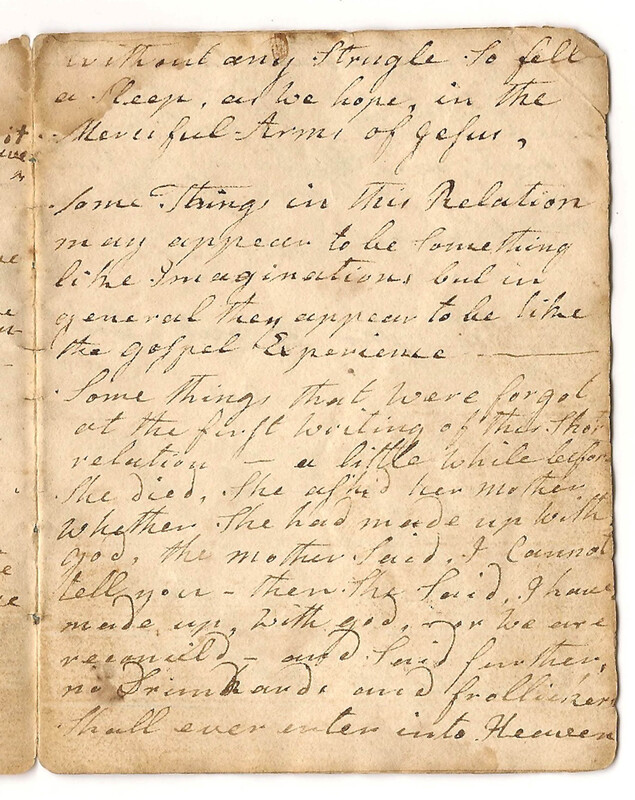 without any Strugle So fell
a Sleep, as we hope, in the
Merciful Arms of Jesus,
Some Things in this Relation
may appear to be Something
like Imaginations but in
general they appear to be like
the gospel Experience
Some things that were forgot
at the first writing of this Short
relation - a little while before
She died, She asked her mother
whether She had made up with
god, the mother Said, I Cannot
tell you - then She Said, I have
made up, with god, or we are
reconcild - and Said further,
no Drunkards and frollickers
Shall ever enter into Heaven